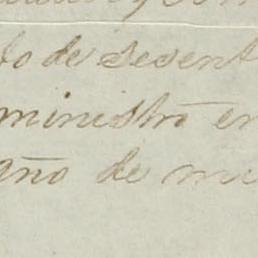 to de sesent
ministró en
gño de mi